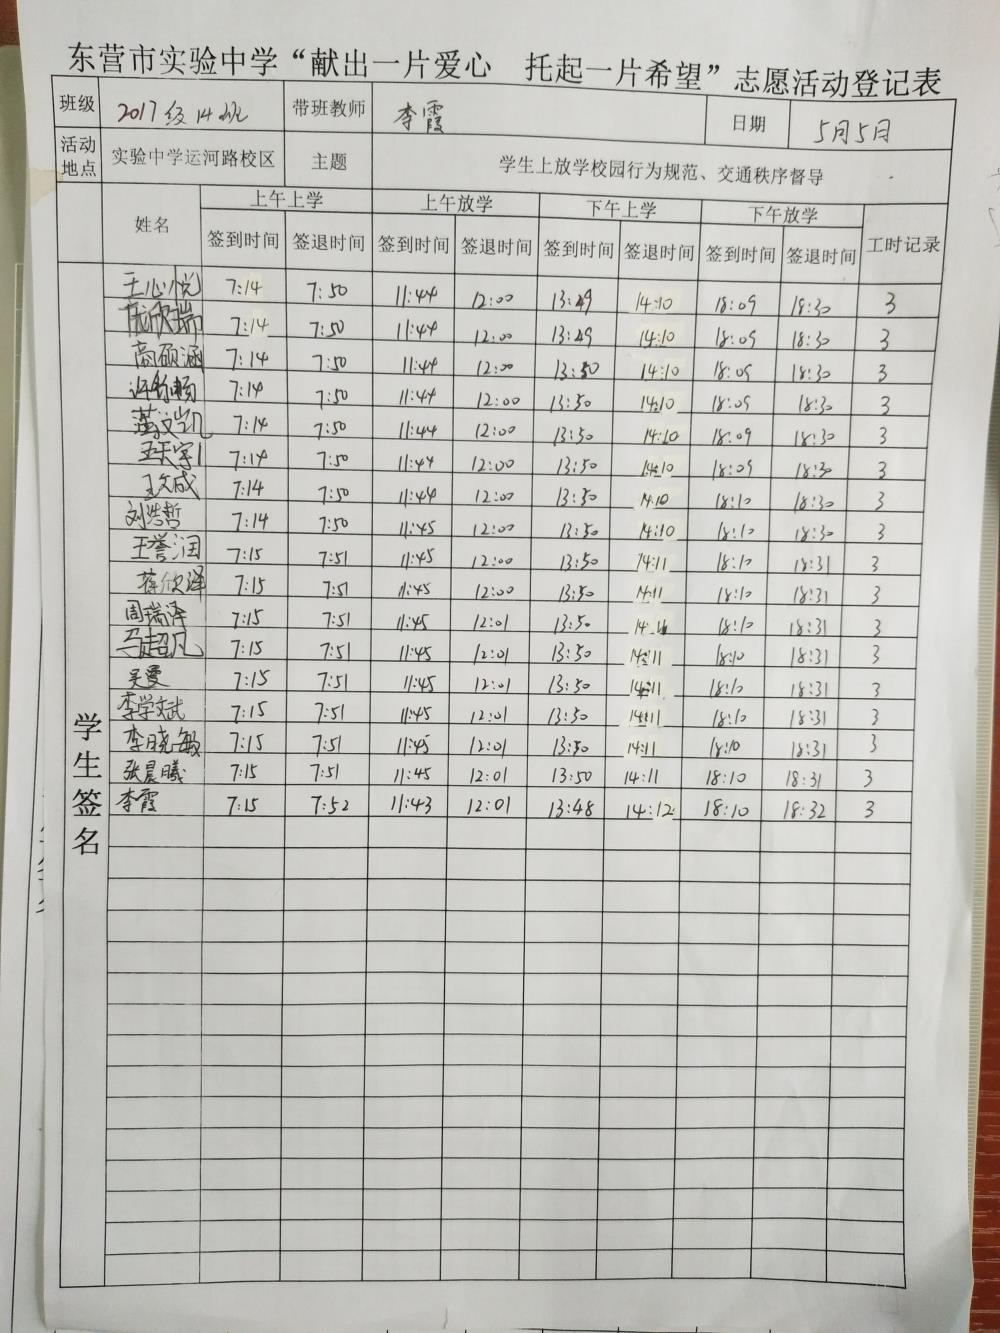 东营市实验中学“献出一片爱心 托起一片希望”志愿活动登记表
班级 2017级14班 带班教师 李霞 日期 5月5日
活动地点 实验中学运河路校区 主题 学生上放学校园行为规范、交通秩序督导
姓名 上午上学 上午放学 下午上学 下午放学 工时记录
签到时间 签退时间 签到时间 签退时间 签到时间 签退时间 签到时间 签退时间
学生签名
王心悦 7:14 7:50 11:44 12:00 13:29 14:10 18:09 18:30 3
欣瑞 7:14 7:50 11:44 12:00 13:29 14:10 18:09 18:30 3
商硕涵 7:14 7:50 11:44 12:00 13:50 14:10 18:09 18:30 3
7:14 7:50 11:44 12:00 13:50 14:10 18:09 18:30 3
文凯 7:14 7:50 11:44 12:00 13:50 14:10 18:09 18:30 3
王天宇1 7:14 7:50 11:44 12:00 13:50 14:10 18:09 18:30 3
王文成 7:14 7:50 11:44 12:00 13:50 14:10 18:10 18:30 3
刘浩哲 7:14 7:50 11:45 12:00 13:50 14:10 18:10 18:30 3
王誉润 7:15 7:51 11:45 12:00 13:50 14:11 18:10 18:31 3
蒋欣泽 7:15 7:51 11:45 12:00 13:50 14:11 18:10 18:31 3
周瑞泽 7:15 7:51 11:45 12:01 13:50 18:10 18:31 3
马超凡 7:15 7:51 11:45 12:01 13:50 14:11 18:10 18:31 3
吴蔓 7:15 7:51 11:45 12:01 13:50 14:11 18:10 18:31 3
李学斌 7:15 7:51 11:45 12:01 13:50 14:11 18:10 18:31 3
李晓敏 7:15 7:51 11:45 12:01 13:50 14:11 18:10 18:31 3
张晨曦 7:15 7:51 11:45 12:01 13:50 14:11 18:10 18:31 3
李霞 7:15 7:52 11:43 12:01 13:48 14:12 18:10 18:32 3